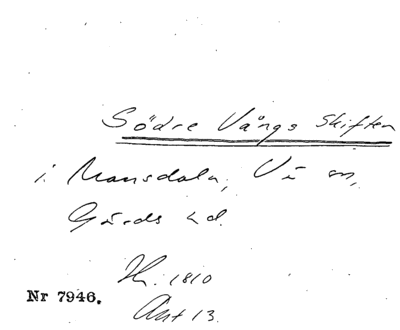 Södre Vångs skiften
i Mansdala, Vä sn,
Gärds hd.
Hr. 1810
Nr 7946.
Akt 13.